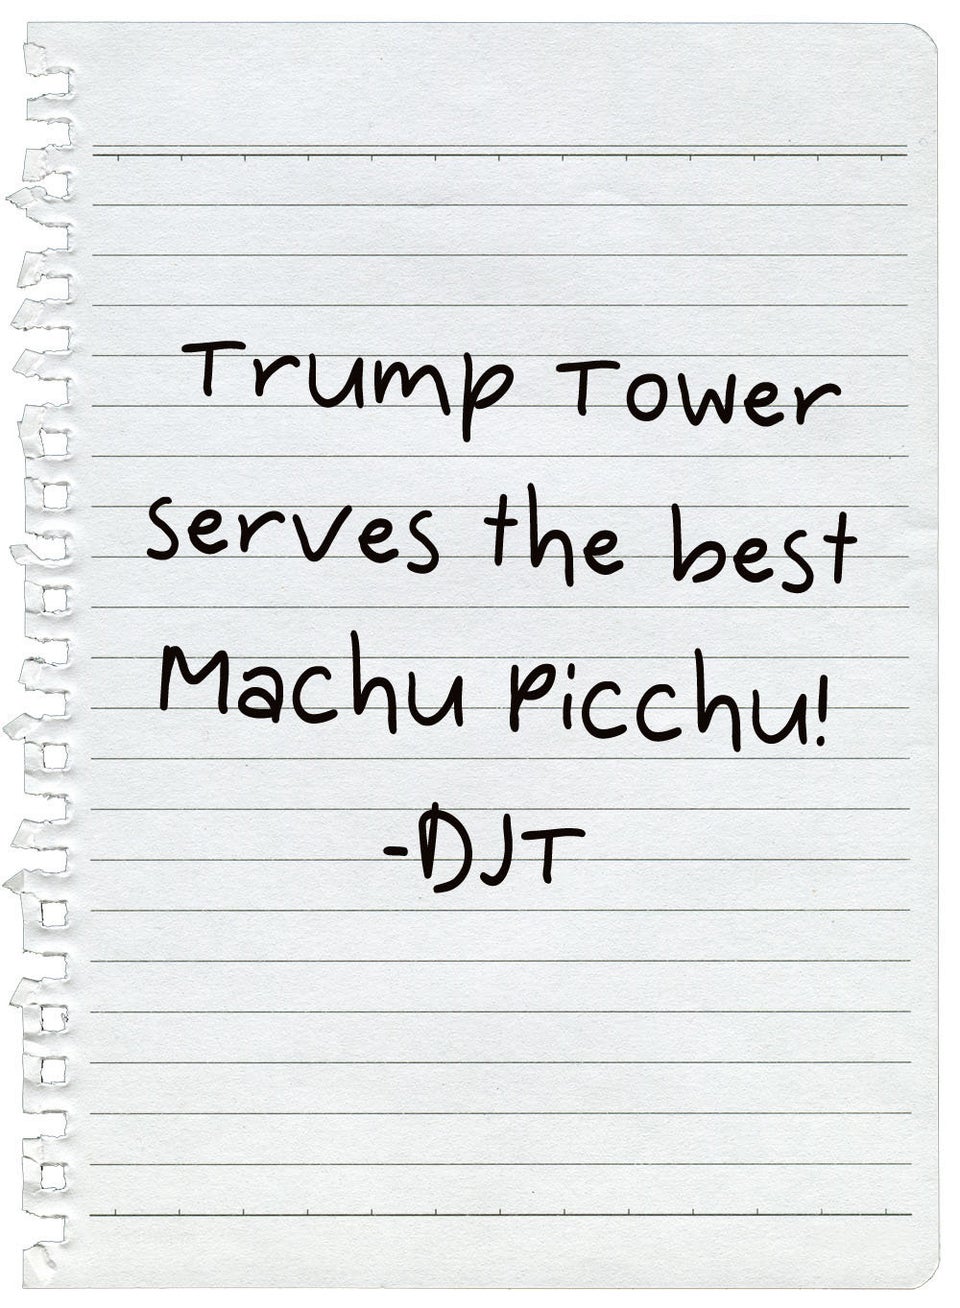 Trump Tower
serves the best
Machu Picchu!
-DJT